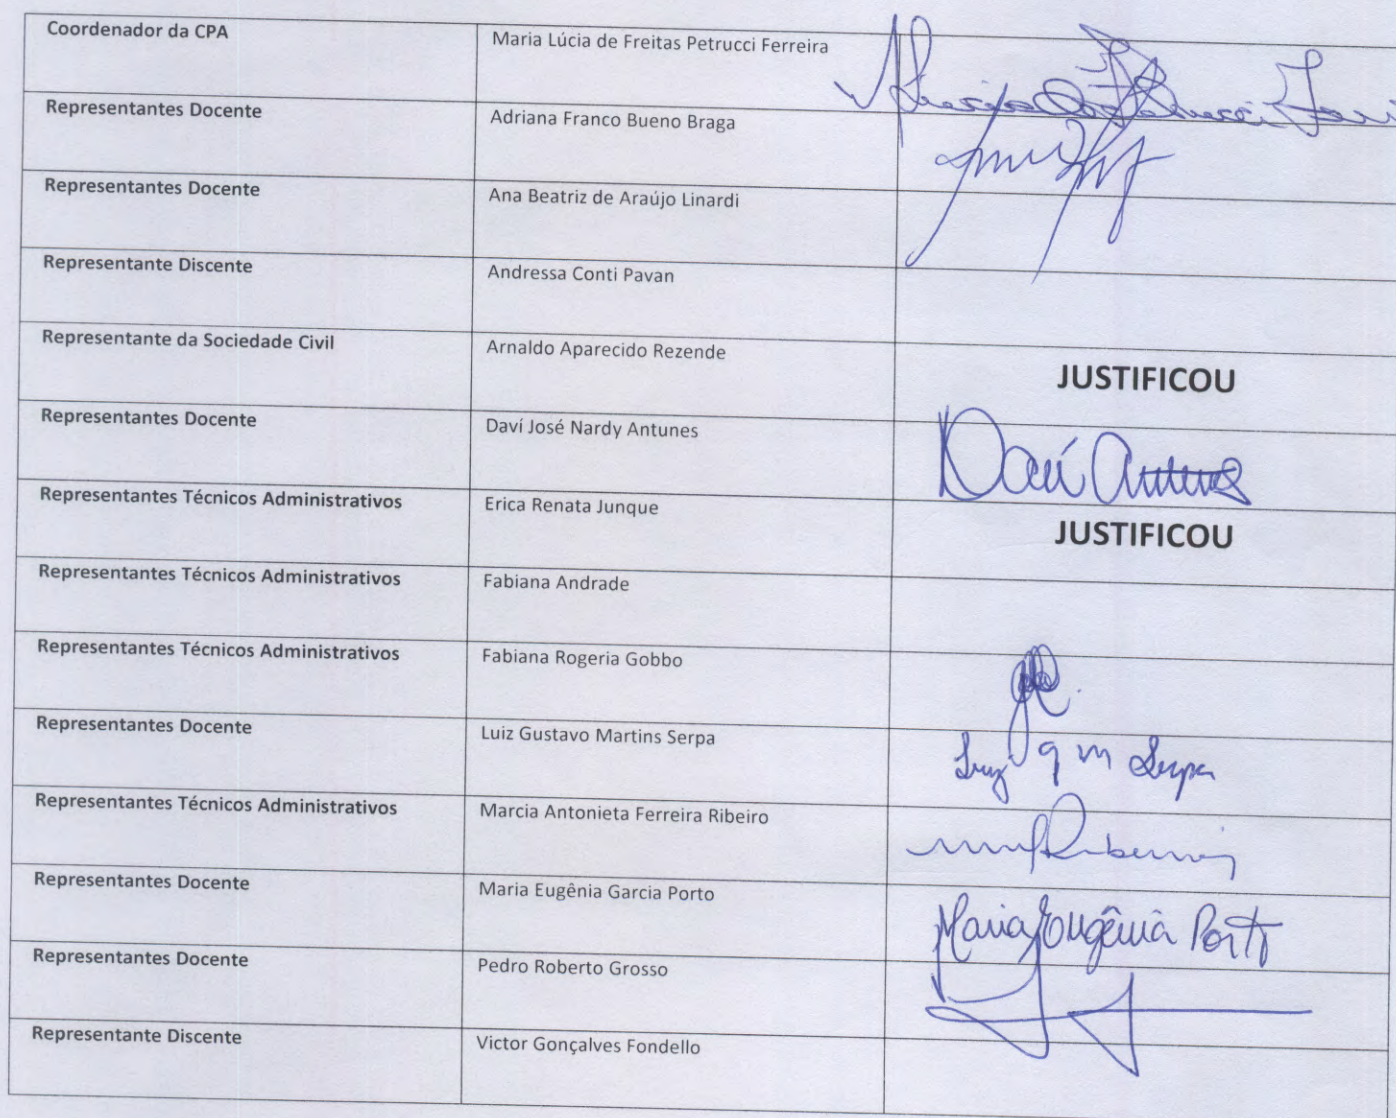 Coordenador da CPA
Maria Lúcia de Freitas Petrucci Ferreira
Representantes Docente
Adriana Franco Bueno Braga
Representantes Docente
Ana Beatriz de Araújo Linardi
Representante Discente
Andressa Conti Pavan
Representante da Sociedade Civil
Arnaldo Aparecido Rezende
JUSTIFICOU
Representantes Docente
Daví José Nardy Antunes
Daví Antunes
Representantes Técnicos Administrativos
Erica Renata Junque
JUSTIFICOU
Representantes Técnicos Administrativos
Fabiana Andrade
Representantes Técnicos Administrativos
Fabiana Rogeria Gobbo
Representantes Docente
Luiz Gustavo Martins Serpa
Luiz g m Serpa
Representantes Técnicos Administrativos
Marcia Antonieta Ferreira Ribeiro
Representantes Docente
Maria Eugênia Garcia Porto
Maria Eugênia Porto
Representantes Docente
Pedro Roberto Grosso
Representante Discente
Victor Gonçalves Fondello